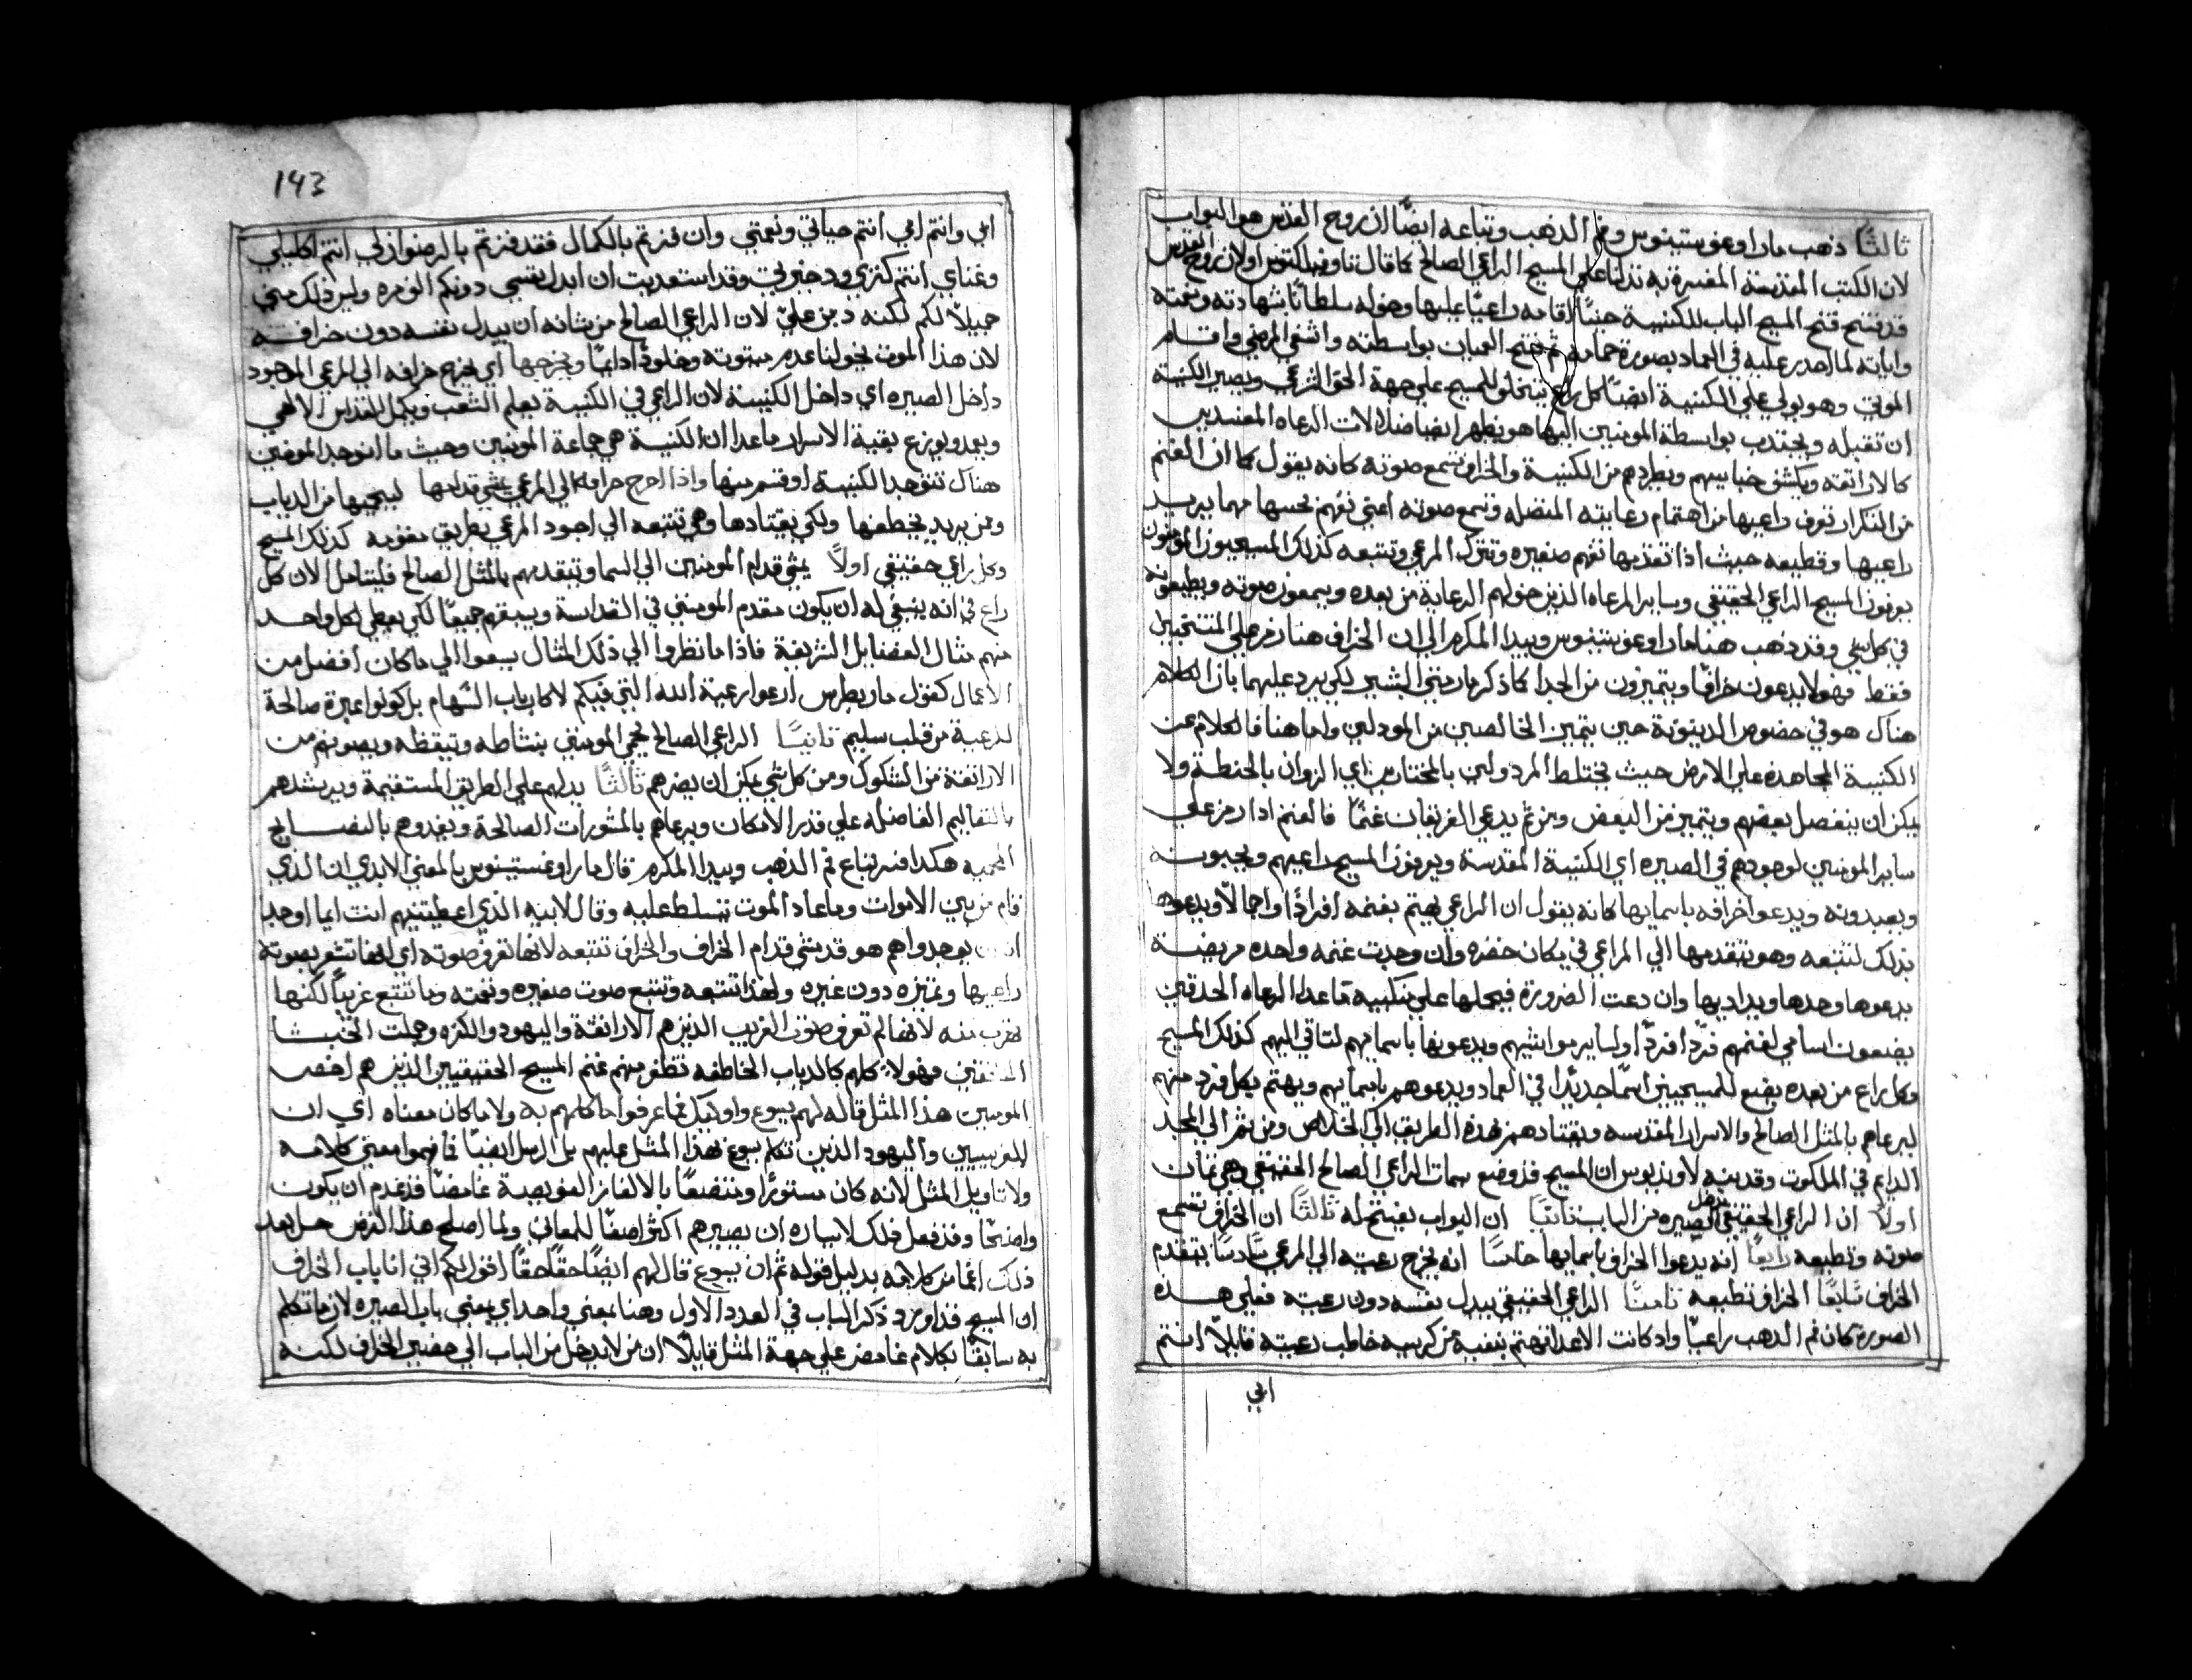 ثالثًا ذهب مار اوغوستينوس وفم الذهب وتباعه ايضًا ان روح القدس هو البواب
لان الكتب المقدسة المفسرة به تدلنا علي المسيح الراعي الصالح كما قال تاوفيلكتوس اولان روح القدس
قد فتح المسيح الباب للكنيسة حينًا اقامه راعيًا عليها وخوله سلطانًا بشهادته ونعمته
واياته لما انحدر عليه في العماد بصورة حمامة ثم فتح العميان بواسطته واشفي المرضي واقام
الموتي وهو يولي علي الكنيسة ايضًا كل راع يتخلق للمسيح علي جهة الحق الشرعي ويصير الكنيسة
ان تقبله ويجتذب بواسطة المومنين اليها هو يظهر ايضا ضلالات الرعاه المعتديين
كالاراتقه ويكشف خباييهم ويطردهم من الكنيسة والخراف تسمع صوته كانه يقول كما ان الغنم
من التكرار تعرف راعيها من اهتمام رعايته المتصله وتسمع صوته اعني تفهم بحسها مهما يريد
راعيها وقطيعه حيث اذا تقدمها تفهم صفيره وتترك المرعي وتتبعه كذلك المسيحيون المومنون
يعرفون المسيح الراعي الحقيقي وساير الرعاه الذين خولهم الرعاية من بعده ويسمعون صوته ويطيعونه
في كل شي وقد ذهب هنا مار اوغوستينوس وبيدا المكرم الي ان الخراف هنا رمز علي المنتخبين
فقط فهولا يدعون خرافًا ويتميزون من الجدا كما ذكر مار متي البشير لكي يرد عليهما بان الكلام
هناك هو في خصوص الدينونة حين يتميز الخالصين من المرذولين واما هنا فالكلام عن
الكنيسة المجاهده علي الارض حيث يختلط المرذولين بالمختارين اي الزوان بالحنطه ولا
يمكن ان ينفصل بعضهم ويتميز من البعض ومن ثم يدعي الفريقان غنمًا فالغنم اذا رمز علي
ساير المومنين لوجودهم في الصيره اي الكنيسة المقدسة ويعرفون المسيح راعيهم ويحبونه
ويعبدونه ويدعوا خرافه باسمايها كانه يقول ان الراعي يهتم بغنمه افرادًا واجمالًا ويدعوها
بذلك لتتبعه وهو يتقدمها الي المراعي في مكان خضره وان وجدت غنمه واحده مريضة
يدعوها وحدها ويداويها وان دعت الضرورة فيحملها علي منكبيه قاعدا الرعاه الحدقين
يضعون اسامي لغنمهم فردًا فردًا او لساير مواشيهم ويدعونها باسمايهم لتاتي اليهم كذلك المسيح
وكل راع من بعده يضع للمسيحيين اسمًا جديدًا في العماد ويدعوهم باسمايهم ويهتم بكل فرد منهم
ليرعاهم بالمثل الصالح والاسرار المقدسه ويقتادهم بهذه الطريق الي الخلاص ومن ثم الي المجد
الدايم في الملكوت وقد نبه لاونديوس ان المسيح قد وضع سمات الراعي الصالح الحقيقي وهي ثمان
اولًا ان الراعي الحقيقي يدخل الصيره من الباب ثانيًا ان البواب يفتح له ثالثًا ان الخراف تسمع
صوته وتطيعه رابعًا انه يدعوا الخراف باسمايها خامسًا انه يخرج رعيته الي المرعي سادسًا يتقدم
الخراف سابعًا الخراف تطيعه ثامنًا الراعي الحقيقي يبدل نفسه دون رعيته فعلي هذه
الصورة كان فم الدهب راعيًا واد كانت الاعدا تهتم بنفيه عن كرسيه خاطب رعيته قايلًا انتم
ابي
143
ابي وانتم امي انتم حياتي ونعمتي وان فزتم بالكمال فقد فزتم بالرضوان لي انتم اكليلي
وغناي انتم كنزي ودخيرتي وقد استعديت ان ابدل نفسي دونكم الف مره وليس ذلك مني
جميلًا لكم لكنه دين علي لان الراعي الصالح من شانه ان يبدل نفسه دون خرافه
لان هذا الموت يخولنا عدم ميتوته وخلودًا دايمًا ويخرجها اي يخرج خرافه الي المرعي الموجود
داخل الصيره اي داخل الكنيسة لان الراعي في الكنيسة يعلم الشعب ويكمل القداس الالهي
ويعد ويوزع بقية الاسرار ماعدا ان الكنيسة هي جماعة المومنين وحيث ما انوجد المومنين
هناك تنوجد الكنيسة او قسم منها واذا اخرج خرافه الي المرعي يمشي قدامها ليحميها من الدياب
وممن يريد يخطفها ولكي يقتادها وهي تتبعه الي اجود المرعي بطريق مقومه كذلك المسيح
وكل راعي حقيقي اولًا يمشي قدام المومنين الي السما ويتقدمهم بالمثل الصالح فليتامل الان كل
راعٍ انه ينبغي له ان يكون متقدم المومنين في القداسة ويسبقهم جميعًا لكي يعطي لكل واحد
منهم مثال الفضايل الشريفة فاذا ما نظروا الي ذلك المثال يسعوا الي ما كان افضل من
الاعمال كقول مار بطرس ارعوا رعية الله التي فيكم لا كارباب السهام بل كونوا عبرة صالحة
للرعية من قلب سليم ثانيًا الراعي الصالح يحمي المومنين بنشاطه وتيقظه ويصونهم من
الاراتقة من الشكوك ومن كل شي يمكن ان يضرهم ثالثًا يدلهم علي الطريق المستقيمة ويرشدهم
بالتعاليم الفاضله علي قدر الامكان ويرعاهم بالمشورات الصالحة ويغدوهم بالنصايح
المحييه هكدا فسر تباع فم الدهب وبيدا المكرم قال مار اوغسطينوس بالمعني الابدي ان الذي
قام من بين الاموات وما عاد الموت يتسلط عليه وقال لابيه الذي اعطيتنيهم انت ايما اوجد
يوجدوا هم هو قد مشي قدام الخراف والخراف تتبعه لانها تعرف صوته اي انها تشعر بصوته
راعيها وتميزه دون غيره ولهذا تتبعه وتتبع صوت صفيره ونغمته وما تتبع غريبًا لكنها
تهرب منه لانها لم تعرف صوت الغريب الذين هم الاراتقة واليهود والكفره وجملت الخبثا
المنافقين فهولا كلهم كالدياب الخاطفه تنفر منهم غنم المسيح الحقيقيين الذين هم اخص
المومنين هذا المثل قاله لهم يسوع واوليك فما عرفوا ما كلمهم به ولا ما كان معناه اي ان
الفريسيين واليهود الذين تكلم يسوع بهذا المثل عليهم بل الرسل ايضًا فما فهموا معني كلامه
ولا تاويل المثل لانه كان مستورًا ومتضعًا بالالفاز العويصة غامضًا فزعم ان يكون
واضحًا وقد فعل ذلك لايساره ان يصيرهم اكثر اصغًا للمعاني ولما اصلح هذا الغرض حل بعد
ذلك اغماض كلامه بدليل قوله ثم ان يسوع قال لهم ايضًا حقًا حقًا اقول لكم اني انا باب الخراف
ان المسيح قد اورد ذكر الباب في العدد الاول وهنا بمعني واحد اي بمعني باب الصيره لان ما تكلم
به سابقًا بكلام غامض علي جهة المثل قايلًا ان من لا يدخل من الباب الي حضير الخراف لكنه